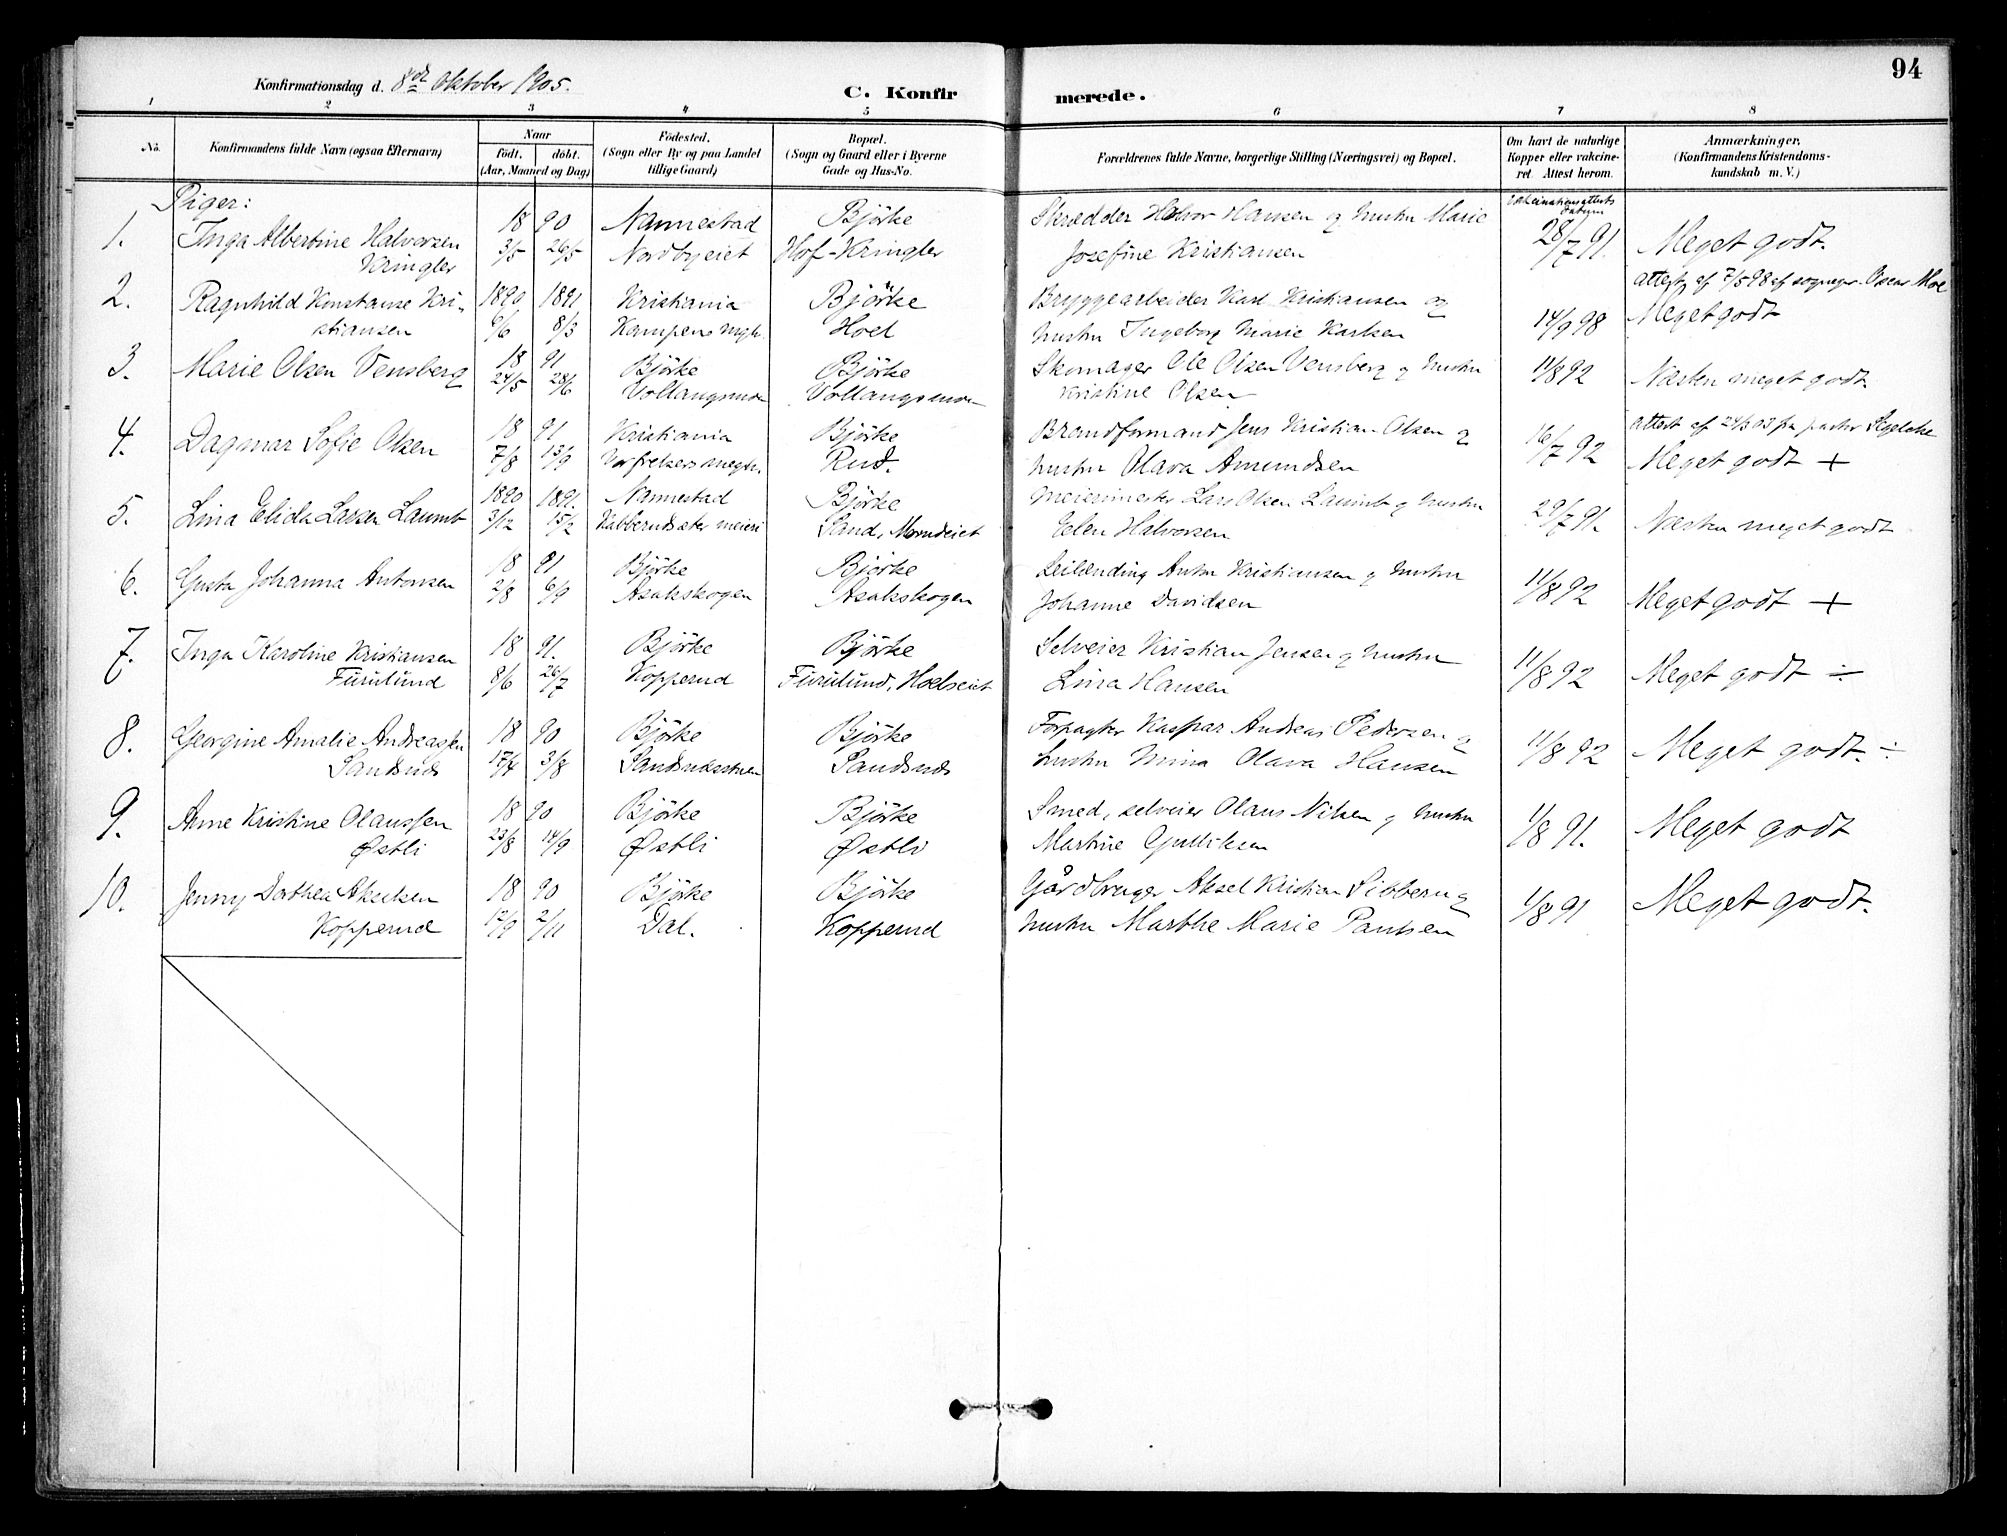 94
Konfirmationsdag d. 8de Oktober 1905.
C. Konfirmerede.
1 2 3 4 5 6 7 8
No.
Konfirmandens fulde Navn (ogsaa Efternavn)
Naar
födt. döbt.
(Aar, Maaned og Dag)
Födested.
(Sogn eller By og paa Landet
tillige Gaard)
Bopæl.
(Sogn og Gaard eller i Byerne
Gade og Hus-No.
Forældrenes fulde Navne, borgerlige Stilling (Næringsvei) og Bopæl.
Om havt de naturlige
Kopper eller vakcine-
ret. Attest herom.
Anmærkninger.
(Konfirmandens Kristendoms-
kundskab m. V.)
Piger:
Vakcinationsattests
Datum
1. Inga Albertine Halvorsen 18 90 Nannestad Björke Skrædder Halvor Hansen og hustru Marie 28/7 91. Meget godt.
Kringler 3/5 26/5 Nordbyeiet Hof-Kringler Josefine Kristiansen
attest af 7/5 98 af sognepr. Oscar Moe
2. Ragnhild Konstanse Kri- 1890 1891 Kristiania Björke Bryggearbeider Karl Kristiansen og 14/9 98 Meget godt
stiansen 6/6 8/3 Kampens mgh. Hoel hustru Ingeborg Marie Karlsen
3. Marie Olsen Vensberg 18 91 Björke Björke Skomager Ole Olsen Vensberg og hustru 11/8 92 Næsten meget godt.
24/5 28/6 Vollaugsmoen Vollaugsmoen Kristine Olsen
attest af 24/3 03 fra pastor
4. Dagmar Sofie Olsen 18 91 Kristiania Björke Brandformand Jens Kristian Olsen og 16/7 92 Meget godt +
7/8 13/9 Vor frelsers megh. Rud. hustru Olava Amundsen
5. Lina Elida Larsen Laumb 1890 1891. Nannestad Björke Meierimester Lars Olsen Laumb og hustru 29/7 91. Næsten meget godt
3/12 15/2 meieri Sand, Moreneiet Elen Halvorsen
6. Gusta Johanna Antonsen 18 91 Björke Björke Leilænding Anton Kristiansen og hustru 11/8 92 Meget godt +
2/8 6/9 Asakskogen Asakskogen Johanne Davidsen
7. Inga Karoline Kristiansen 18 91. Björke Björke Selveier Kristian Jensen og hustru 11/8 92 Meget godt ÷
Furulund 8/6 26/7 Kopperud Furulund, Hoelseiet Lina Hansen
8. Georgine Amalie Andreassen 18 90 Björke Björke Forpagter Kaspar Andreas Pedersen og 11/8 92 Meget godt. ÷
Sandsnds 17/4 3/8 Sandsnds hustru Mina Olava Hansen
9. Anne Kristine Olaussen 18 90 Björke Björke Smed, selveier Olaus Nilsen og hustru 1/8 91. Meget godt
Østli 23/8 14/9 Østli Østli Martine Gulliksen
10. Jenny Dorthea Akselsen 18 90 Björke Björke Gårdbruger Aksel Kristian Sibbern og 1/8 91 Meget godt.
Kopperud 12/9 2/11 Dal. Kopperud hustru Marthe Marie Paulsen